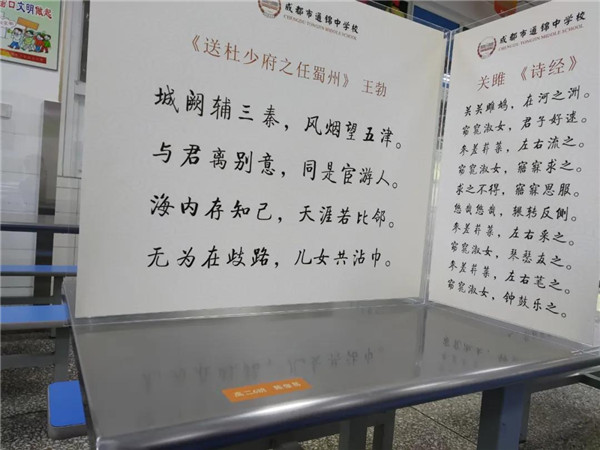 口文明做起
成都市通锦中学校
CHENGDU TONGJIN MIDDLE SCHOOL
《送杜少府之任蜀州》 王勃
城阙辅三秦，风烟望五津。
与君离别意，同是宦游人。
海内存知己，天涯若比邻。
无为在歧路，儿女共沾巾。
成都市通锦中学校
CHENGDU TONGJIN MIDDLE SCHOOL
关雎 《诗经》
关关雎鸠，在河之洲。
窈窕淑女，君子好逑。
参差荇菜，左右流之。
窈窕淑女，寤寐求之。
求之不得，寤寐思服。
悠哉悠哉，辗转反侧。
参差荇菜，左右采之。
窈窕淑女，琴瑟友之。
参差荇菜，左右芼之。
窈窕淑女，钟鼓乐之。